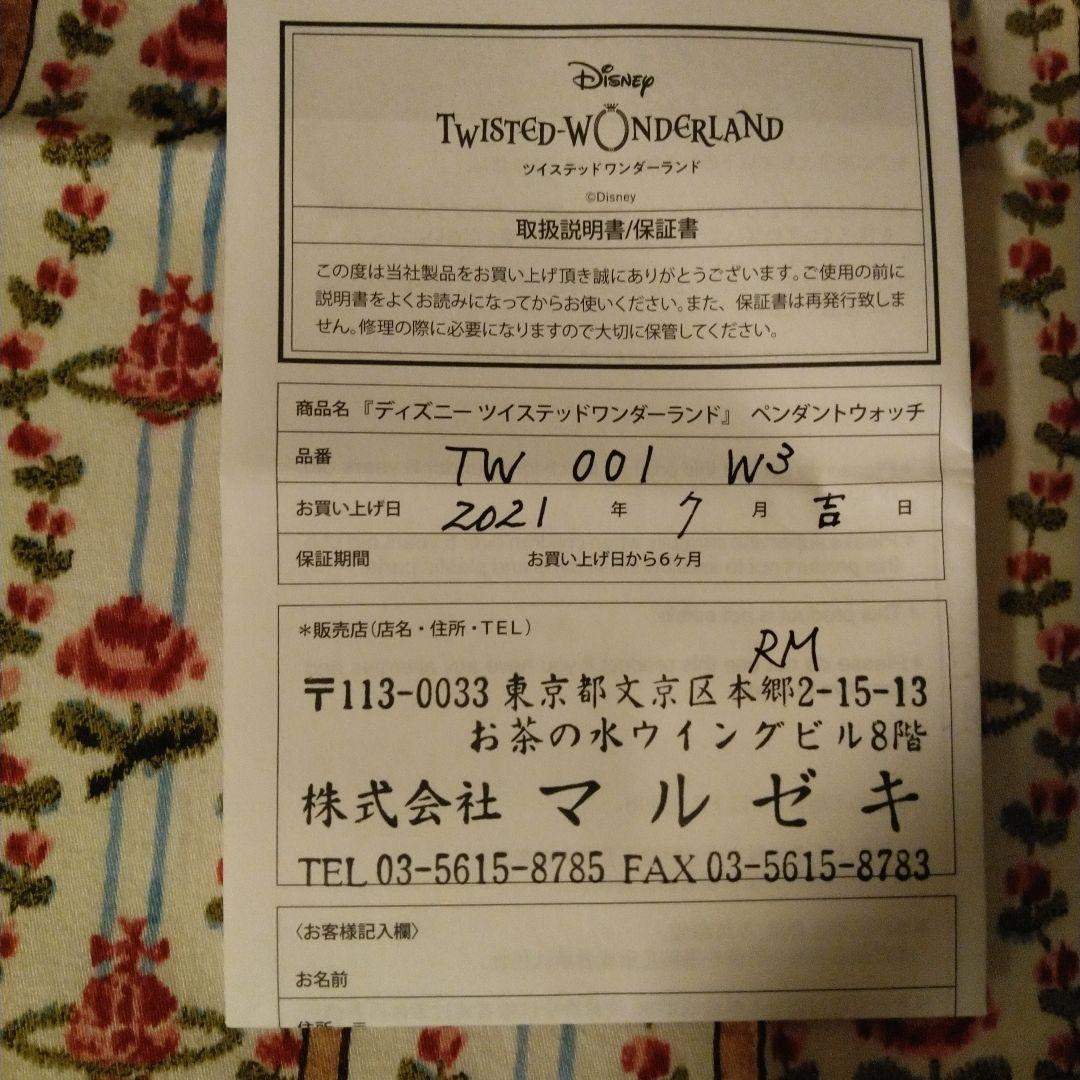 Disney
TWISTED-WONDERLAND
ツイステッドワンダーランド
©Disney
取扱説明書/保証書
この度は当社製品をお買い上げ頂き誠にありがとうございます。ご使用の前に
説明書をよくお読みになってからお使いください。また、保証書は再発行致しま
せん。修理の際に必要になりますので大切に保管してください。
商品名 『ディズニー ツイステッドワンダーランド』 ペンダントウォッチ
品番 TW 001 W3
お買い上げ日 2021 年 7 月 吉 日
保証期間 お買い上げ日から6ヶ月
*販売店(店名・住所・TEL)
RM
〒113-0033 東京都文京区本郷2-15-13
お茶の水ウイングビル8階
株式会社 マルゼキ
TEL 03-5615-8785 FAX 03-5615-8783
〈お客様記入欄〉
お名前
住所 〒